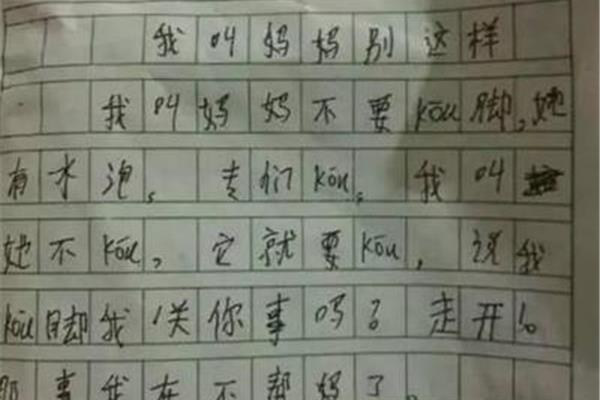 我叫妈妈别这样
我叫妈妈不要kōu脚,她
有水泡。专们kōu。我叫
她不kōu,它就要kōu,说我
kōu脚我关你事吗?走开!。
事我在不帮妈了。